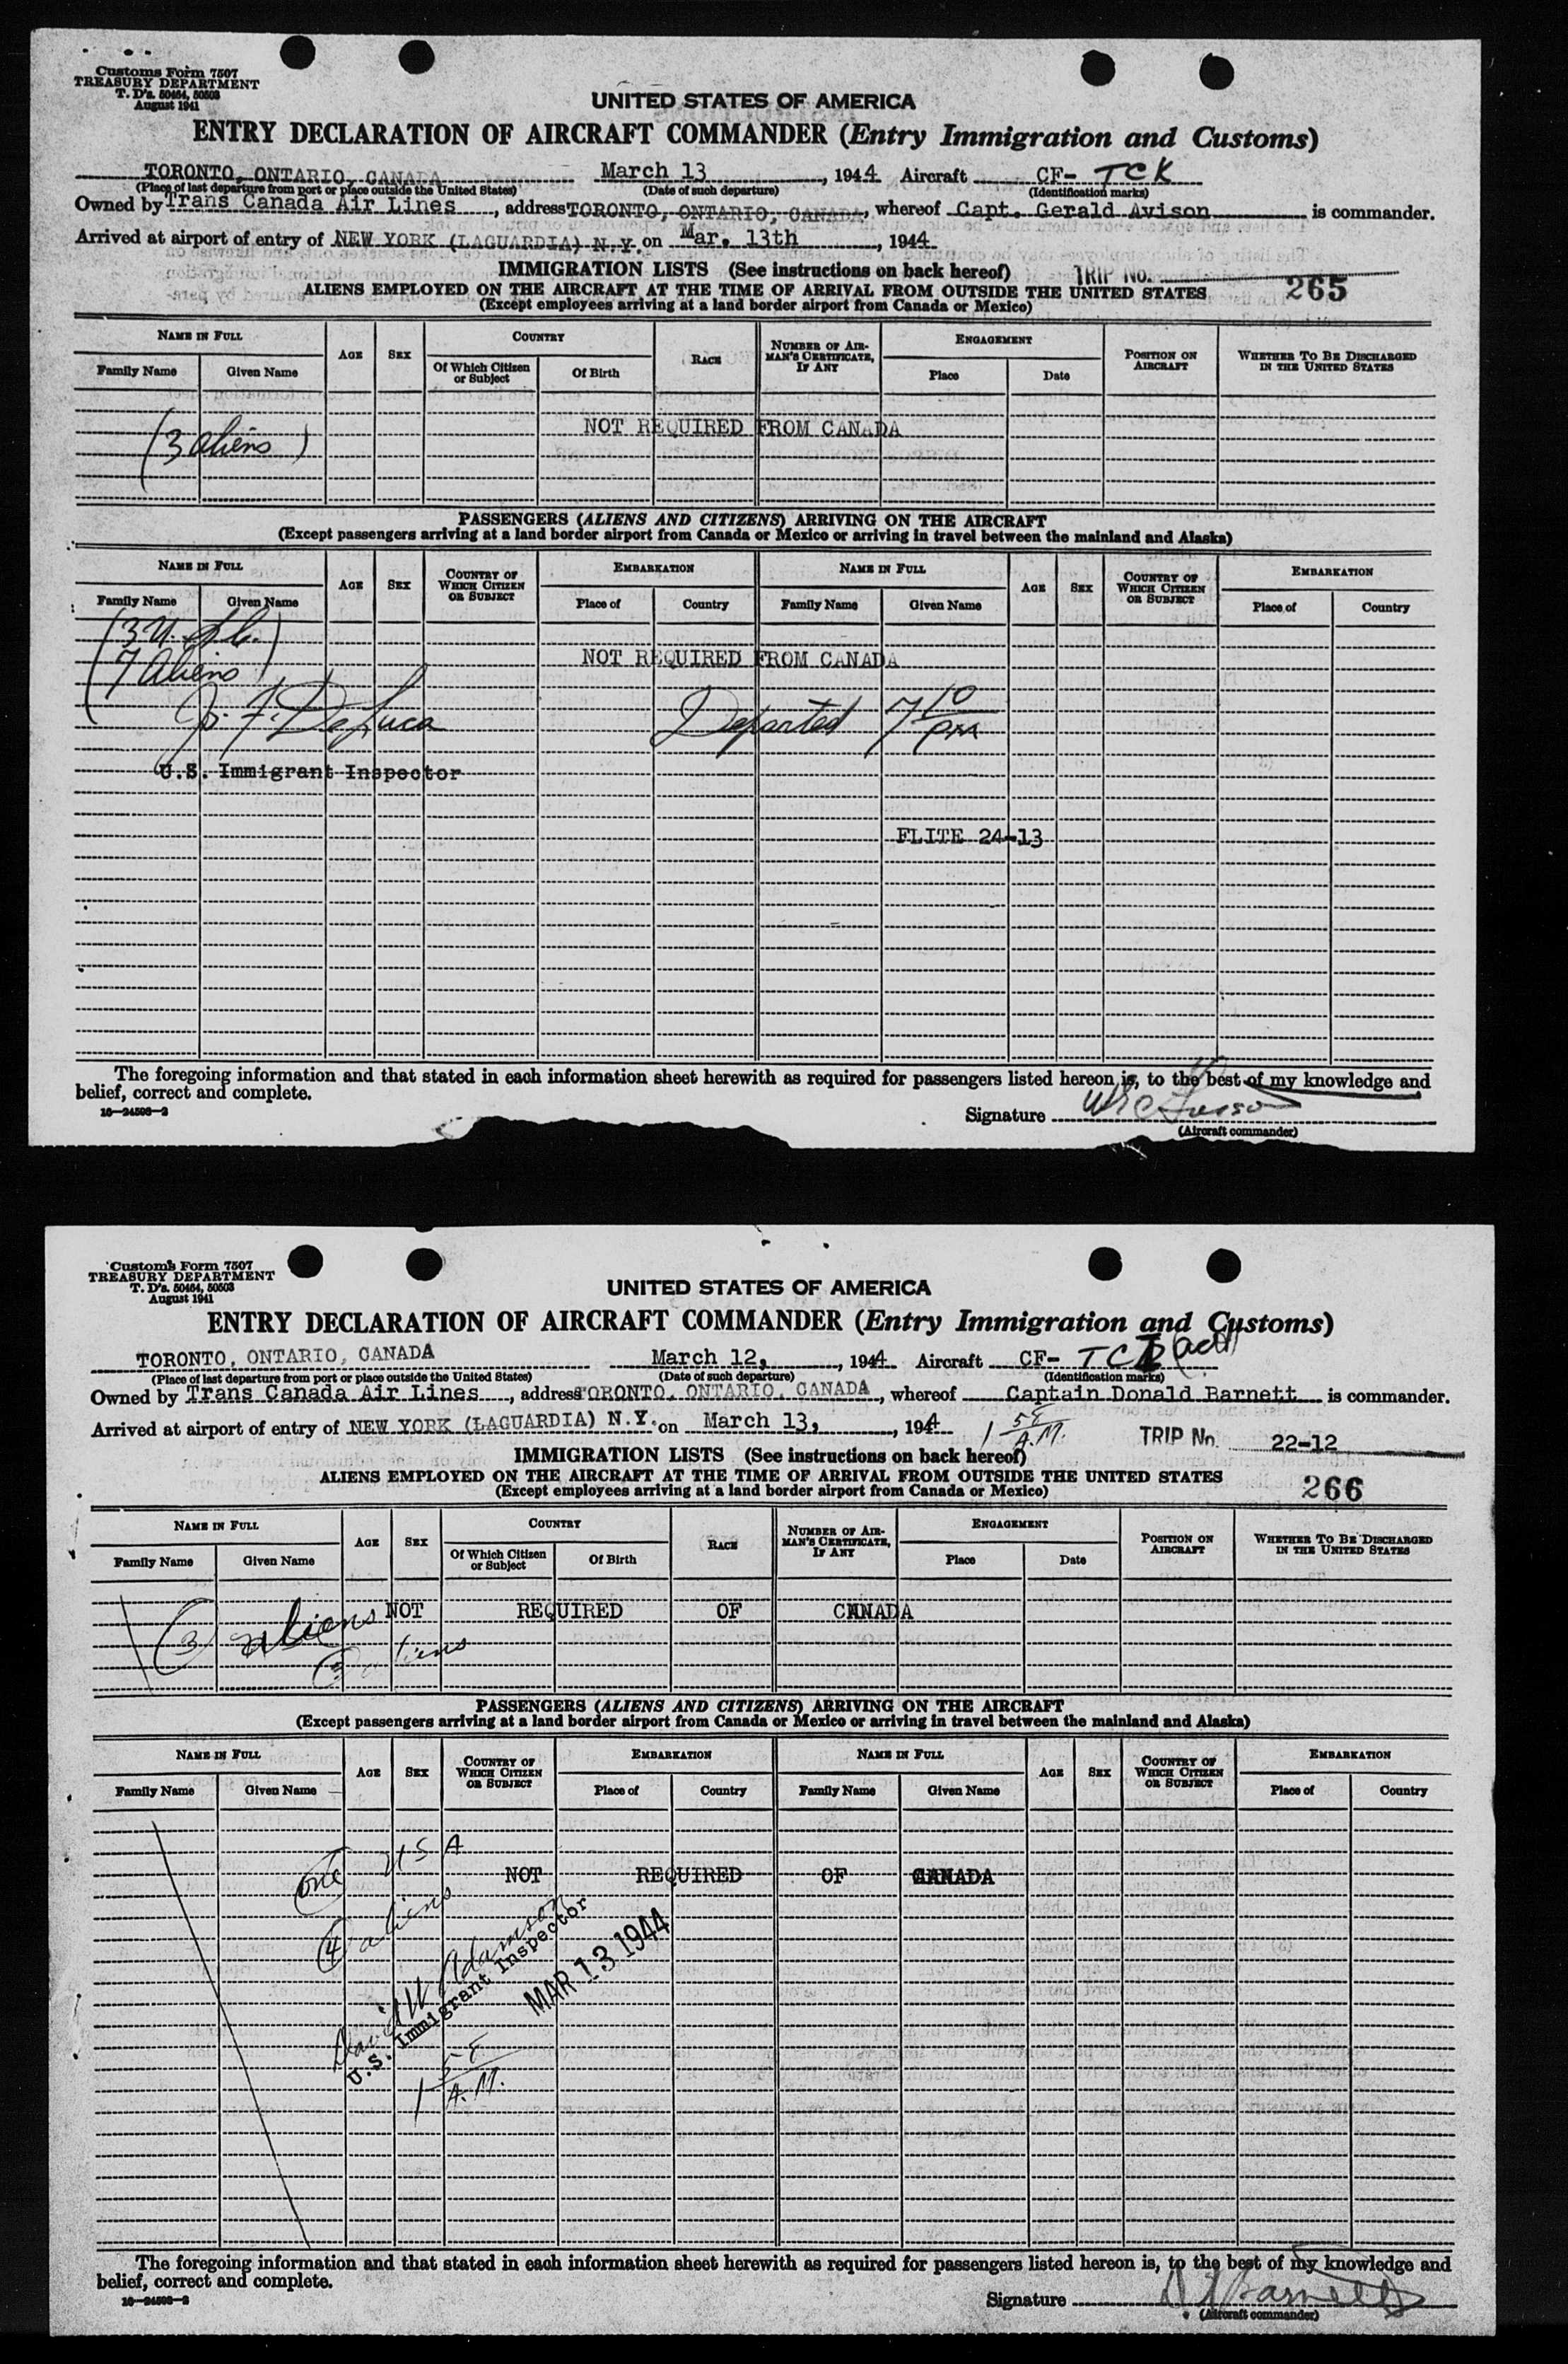 Customs Form 7507
TREASURY DEPARTMENT
T. D's. 50464, 50503
August 1941
UNITED STATES OF AMERICA
ENTRY DECLARATION OF AIRCRAFT COMMANDER (Entry Immigration and Customs)
TORONTO, ONTARIO, CANADA March 13, 1944 Aircraft CF- TCK
(Place of last departure from port or place outside the United States) (Date of such departure) (Identification marks)
Owned by Trans Canada Air Lines, address TORONTO, ONTARIO, CANADA, whereof Capt. Gerald Avison is commander.
Arrived at airport of entry of NEW YORK (LAGUARDIA) N.Y. on Mar. 13th, 1944
IMMIGRATION LISTS (See instructions on back hereof) TRIP No.
ALIENS EMPLOYED ON THE AIRCRAFT AT THE TIME OF ARRIVAL FROM OUTSIDE THE UNITED STATES 265
(Except employees arriving at a land border airport from Canada or Mexico)
NAME IN FULL AGE SEX COUNTRY RACE NUMBER OF AIRMAN'S CERTIFICATE, IF ANY ENGAGEMENT POSITION ON AIRCRAFT WHETHER TO BE DISCHARGED IN THE UNITED STATES
Family Name Given Name Of Which Citizen or Subject Of Birth Place Date
NOT REQUIRED FROM CANADA
(3 aliens)
PASSENGERS (ALIENS AND CITIZENS) ARRIVING ON THE AIRCRAFT
(Except passengers arriving at a land border airport from Canada or Mexico or arriving in travel between the mainland and Alaska)
NAME IN FULL AGE SEX COUNTRY OF WHICH CITIZEN OR SUBJECT EMBARKATION NAME IN FULL AGE SEX COUNTRY OF WHICH CITIZEN OR SUBJECT EMBARKATION
Family Name Given Name Place of Country Family Name Given Name Place of Country
(3 U.
7 Aliens) NOT REQUIRED FROM CANADA
J. F. DeLuca Departed 7 10 pm
U.S. Immigrant Inspector
FLITE 24-13
The foregoing information and that stated in each information sheet herewith as required for passengers listed hereon is, to the best of my knowledge and
belief, correct and complete.
16-24503-2
Signature
(Aircraft commander)
Customs Form 7507
TREASURY DEPARTMENT
T. D's. 50464, 50503
August 1941
UNITED STATES OF AMERICA
ENTRY DECLARATION OF AIRCRAFT COMMANDER (Entry Immigration and Customs)
TORONTO, ONTARIO, CANADA March 12, 1944 Aircraft CF-
(Place of last departure from port or place outside the United States) (Date of such departure) (Identification marks)
Owned by Trans Canada Air Lines, address TORONTO, ONTARIO, CANADA, whereof Captain Donald Barnett is commander.
Arrived at airport of entry of NEW YORK (LAGUARDIA) N.Y. on March 13, 1944 A.M. TRIP No. 22-12
IMMIGRATION LISTS (See instructions on back hereof)
ALIENS EMPLOYED ON THE AIRCRAFT AT THE TIME OF ARRIVAL FROM OUTSIDE THE UNITED STATES 266
(Except employees arriving at a land border airport from Canada or Mexico)
NAME IN FULL AGE SEX COUNTRY RACE NUMBER OF AIRMAN'S CERTIFICATE, IF ANY ENGAGEMENT POSITION ON AIRCRAFT WHETHER TO BE DISCHARGED IN THE UNITED STATES
Family Name Given Name Of Which Citizen or Subject Of Birth Place Date
(3) aliens NOT REQUIRED OF CANADA
(3) aliens
PASSENGERS (ALIENS AND CITIZENS) ARRIVING ON THE AIRCRAFT
(Except passengers arriving at a land border airport from Canada or Mexico or arriving in travel between the mainland and Alaska)
NAME IN FULL AGE SEX COUNTRY OF WHICH CITIZEN OR SUBJECT EMBARKATION NAME IN FULL AGE SEX COUNTRY OF WHICH CITIZEN OR SUBJECT EMBARKATION
Family Name Given Name Place of Country Family Name Given Name Place of Country
One USA
NOT REQUIRED OF CANADA
(4) aliens
David W Adamson
U.S. Immigrant Inspector
MAR 13 1944
A.M.
The foregoing information and that stated in each information sheet herewith as required for passengers listed hereon is, to the best of my knowledge and
belief, correct and complete.
16-24503-2
Signature D Barnett
(Aircraft commander)